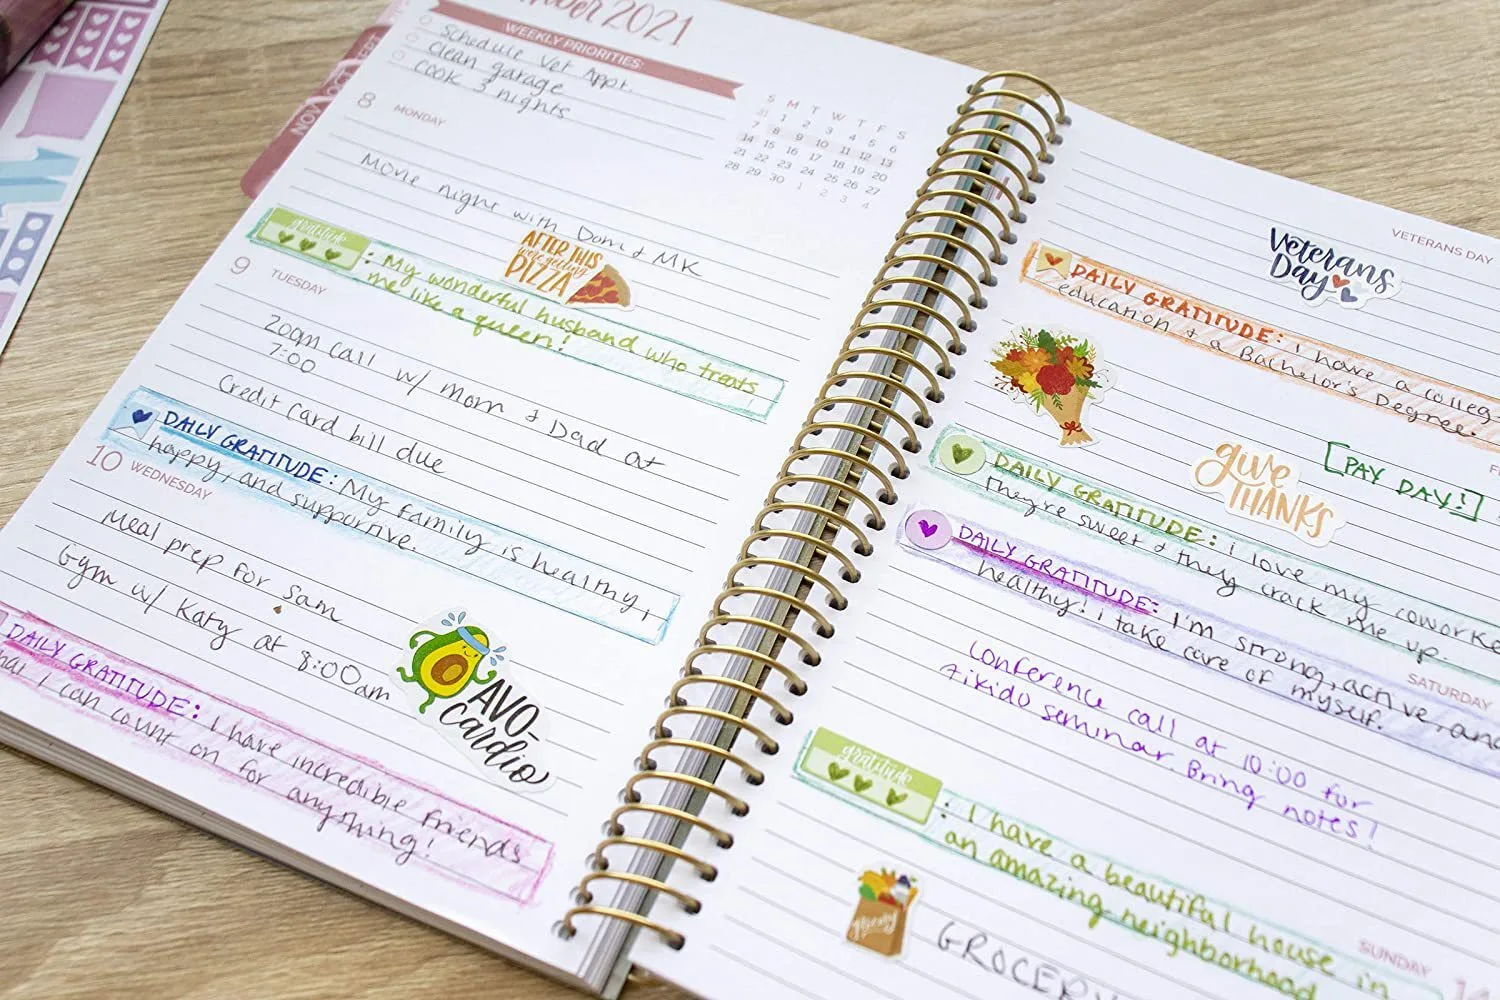 2021
WEEKLY PRIORITIES:
Schedule Vet Appt.
Clean garage
Cook 3 nights
S M T W T F S
31 1 2 3 4 5 6
7 8 9 10 11 12 13
14 15 16 17 18 19 20
21 22 23 24 25 26 27
28 29 30 1 2 3 4
NOV OCT SEPT
8 MONDAY
Movie night with Dom & MK
AFTER THIS
we're getting
PIZZA
gratitude
: My wonderful husband who treats
me like a queen!
9 TUESDAY
Zoom Call w/ Mom & Dad at
7:00
Credit Card bill due
DAILY GRATITUDE: My family is healthy,
happy, and supportive.
10 WEDNESDAY
Meal prep for Sam
Gym w/ Katy at 8:00am
AVO-
Cardio
DAILY GRATITUDE: I have incredible friends
I can count on for
anything!
VETERANS DAY
Veterans
Day
DAILY GRATITUDE: i have a
education & a Bachelor's Degree.
give
THANKS
[PAY DAY!]
DAILY GRATITUDE: i love my
They're sweet & they crack me up.
DAILY GRATITUDE: I'm strong, active, and
healthy! i take care of myself.
SATURDAY
Conference call at 10:00 for
Aikido seminar. Bring notes!
gratitude
: I have a beautiful house in
an amazing neighborhood
SUNDAY